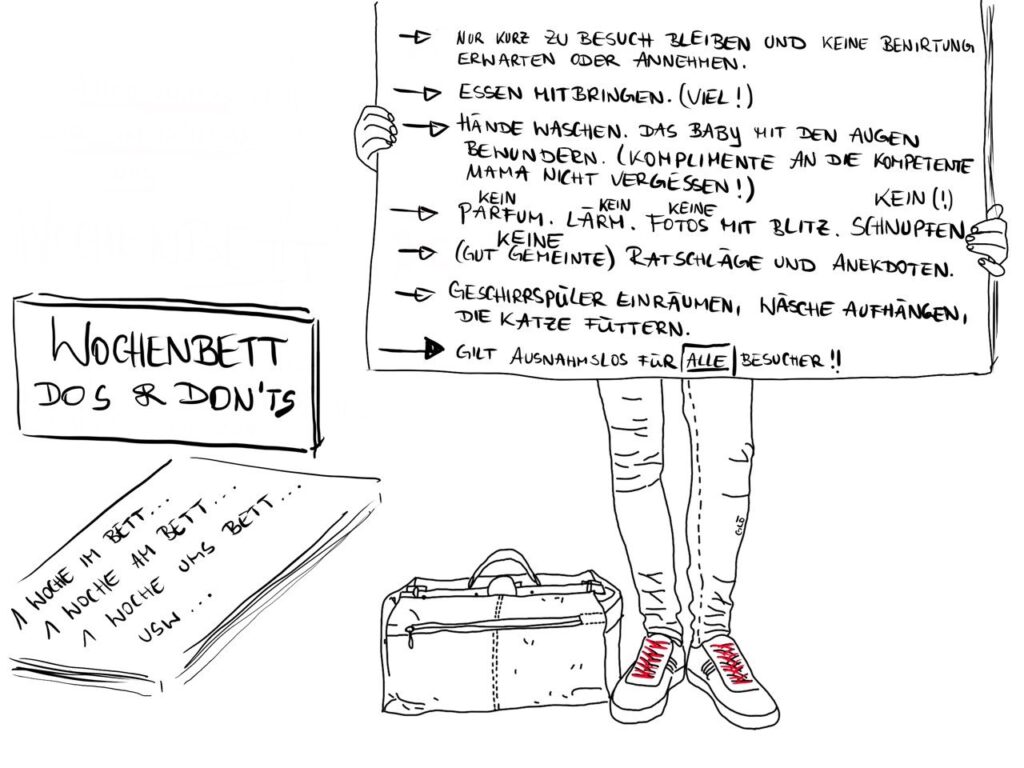 NUR KURZ ZU BESUCH BLEIBEN UND KEINE BEWIRTUNG
ERWARTEN ODER ANNEHMEN.
ESSEN MITBRINGEN. (VIEL!)
HÄNDE WASCHEN. DAS BABY MIT DEN AUGEN
BEWUNDERN. (KOMPLIMENTE AN DIE KOMPETENTE
MAMA NICHT VERGESSEN!)
KEIN KEIN KEINE KEIN (!)
PARFUM. LÄRM. FOTOS MIT BLITZ. SCHNUPFEN.
KEINE
(GUT GEMEINTE) RATSCHLÄGE UND ANEKDOTEN.
GESCHIRRSPÜLER EINRÄUMEN, WÄSCHE AUFHÄNGEN,
DIE KATZE FÜTTERN.
GILT AUSNAHMSLOS FÜR ALLE BESUCHER!!
WOCHENBETT
DOS & DON'TS
1 WOCHE IM BETT...
1 WOCHE AM BETT...
1 WOCHE UMS BETT...
USW...